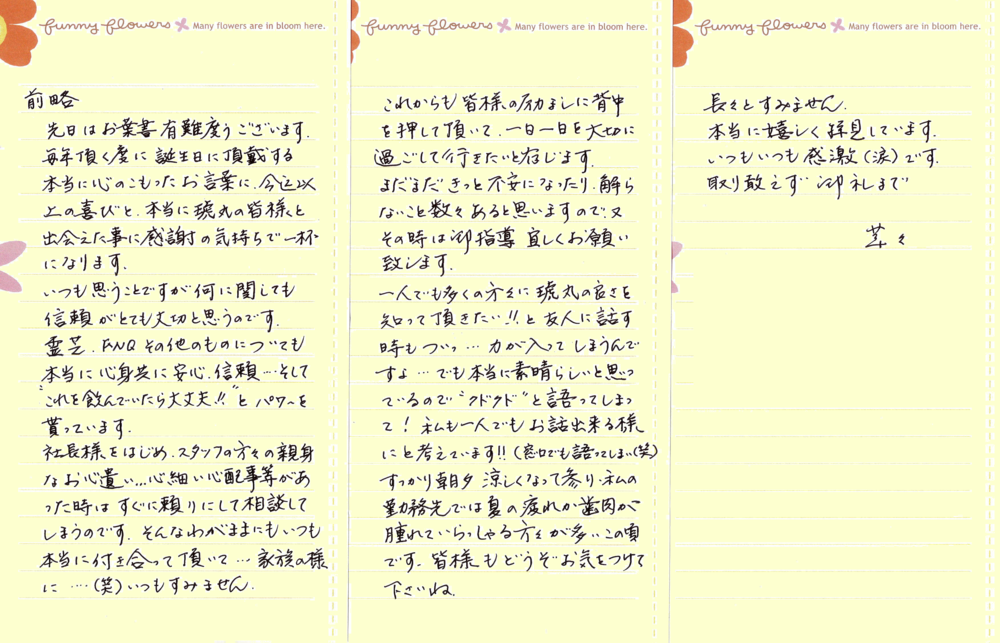 funny flowers Many flowers are in bloom here.
前略
先日はお葉書有難度うございます.
毎年頂く度に誕生日に頂戴する
本当に心のこもったお言葉に、今迄以
上の喜びと、本当に琥丸の皆様と
出会えた事に感謝の気持ちで一杯
になります.
いつも思うことですが何に関しても
信頼がとても大切と思うのです.
霊芝、FNQその他のものについても
本当に心身共に安心、信頼…そして
"これを飲んでいたら大丈夫!!"とパワーを
貰っています.
社長様をはじめ、スタッフの方々の親身
なお心遣い…心細い心配事等があ
った時はすぐに頼りにして相談して
しまうのです. そんなわがままにもいつも
本当に付き合って頂いて…家族の様
に…(笑)いつもすみません.
funny flowers Many flowers are in bloom here.
これからも皆様の励ましに背中
を押して頂いて、一日一日を大切に
過ごして行きたいと存じます.
まだまだきっと不安になったり、解ら
ないこと数々あると思いますので、又
その時は御指導宜しくお願い
致します.
一人でも多くの方々に琥丸の良さを
知って頂きたい!!と友人に話す
時もついっ…力が入ってしまうんで
すよ…でも本当に素晴らしいと思っ
ているので"クドクド"と語ってしまっ
て!私も一人でもお話出来る様
にと考えています!!(窓口でも語ってしまい(笑)
すっかり朝夕涼しくなって参り、私の
勤務先では夏の疲れか歯肉が
腫れていらっしゃる方々が多いこの頃
です. 皆様もどうぞお気をつけて
下さいね.
funny flowers Many flowers are in bloom here.
長々とすみません.
本当に嬉しく拝見しています.
いつもいつも感激(涙)です.
取り敢えず御礼まで
草々